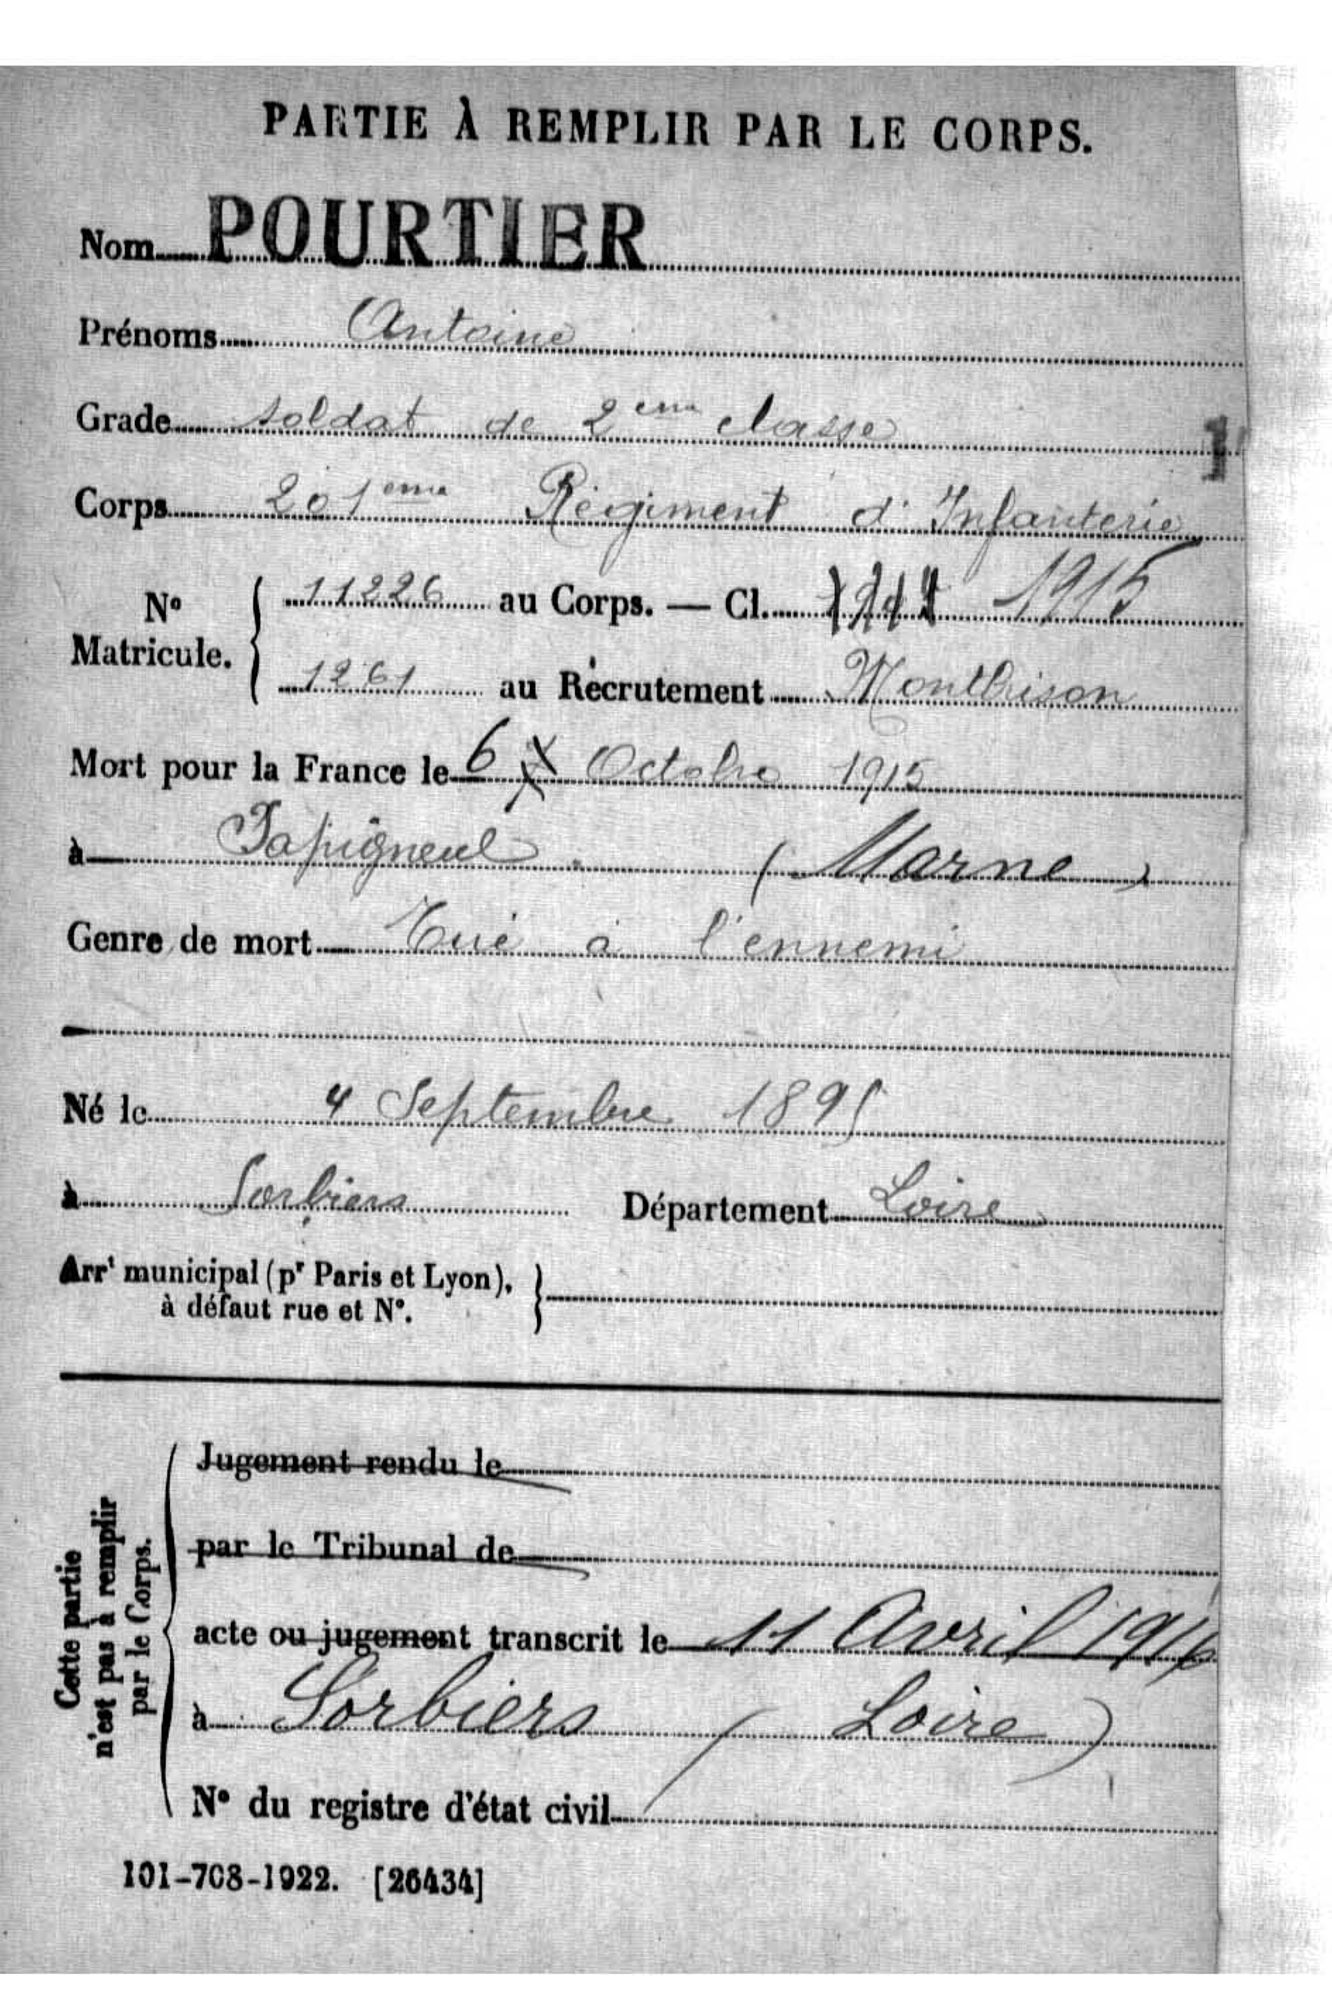 PARTIE À REMPLIR PAR LE CORPS.
Nom POURTIER
Prénoms Antoine
Grade soldat de 2eme classe
Corps 201eme Régiment d'Infanterie
No Matricule. { 11226 au Corps. — Cl. 1914 1915
1261 au Recrutement Montbrison
Mort pour la France le 6 X Octobre 1915
à Sapigneul (Marne)
Genre de mort Tué à l'ennemi
Né le 4 Septembre 1895
à Sorbiers Département Loire
Arrt municipal (pr Paris et Lyon), à défaut rue et No. }
Cette partie n'est pas à remplir par le Corps.
Jugement rendu le
par le Tribunal de
acte ou jugement transcrit le 11 Avril 1916
à Sorbiers (Loire)
No du registre d'état civil
101-708-1922. [26434]